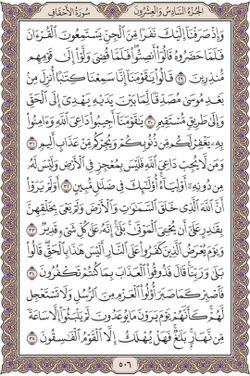 الجزء السادس والعشرون سورة الأحقاف
وَإِذْ صَرَفْنَآ إِلَيْكَ نَفَرًا مِّنَ ٱلْجِنِّ يَسْتَمِعُونَ ٱلْقُرْءَانَ
فَلَمَّا حَضَرُوهُ قَالُوٓا۟ أَنصِتُوا۟ ۖ فَلَمَّا قُضِىَ وَلَّوْا۟ إِلَىٰ قَوْمِهِم
مُّنذِرِينَ ٢٩ قَالُوا۟ يَٰقَوْمَنَآ إِنَّا سَمِعْنَا كِتَٰبًا أُنزِلَ مِنۢ
بَعْدِ مُوسَىٰ مُصَدِّقًا لِّمَا بَيْنَ يَدَيْهِ يَهْدِىٓ إِلَى ٱلْحَقِّ
وَإِلَىٰ طَرِيقٍ مُّسْتَقِيمٍ ٣٠ يَٰقَوْمَنَآ أَجِيبُوا۟ دَاعِىَ ٱللَّهِ وَءَامِنُوا۟
بِهِۦ يَغْفِرْ لَكُم مِّن ذُنُوبِكُمْ وَيُجِرْكُم مِّنْ عَذَابٍ أَلِيمٍ ٣١
وَمَن لَّا يُجِبْ دَاعِىَ ٱللَّهِ فَلَيْسَ بِمُعْجِزٍ فِى ٱلْأَرْضِ وَلَيْسَ لَهُۥ
مِن دُونِهِۦٓ أَوْلِيَآءُ ۚ أُو۟لَٰٓئِكَ فِى ضَلَٰلٍ مُّبِينٍ ٣٢ أَوَلَمْ يَرَوْا۟
أَنَّ ٱللَّهَ ٱلَّذِى خَلَقَ ٱلسَّمَٰوَٰتِ وَٱلْأَرْضَ وَلَمْ يَعْىَ بِخَلْقِهِنَّ
بِقَٰدِرٍ عَلَىٰٓ أَن يُحْـِۧىَ ٱلْمَوْتَىٰ ۚ بَلَىٰٓ إِنَّهُۥ عَلَىٰ كُلِّ شَىْءٍ قَدِيرٌ ٣٣
وَيَوْمَ يُعْرَضُ ٱلَّذِينَ كَفَرُوا۟ عَلَى ٱلنَّارِ أَلَيْسَ هَٰذَا بِٱلْحَقِّ ۖ قَالُوا۟
بَلَىٰ وَرَبِّنَا ۚ قَالَ فَذُوقُوا۟ ٱلْعَذَابَ بِمَا كُنتُمْ تَكْفُرُونَ ٣٤
فَٱصْبِرْ كَمَا صَبَرَ أُو۟لُوا۟ ٱلْعَزْمِ مِنَ ٱلرُّسُلِ وَلَا تَسْتَعْجِل
لَّهُمْ ۚ كَأَنَّهُمْ يَوْمَ يَرَوْنَ مَا يُوعَدُونَ لَمْ يَلْبَثُوٓا۟ إِلَّا سَاعَةً
مِّن نَّهَارٍۭ ۚ بَلَٰغٌ ۚ فَهَلْ يُهْلَكُ إِلَّا ٱلْقَوْمُ ٱلْفَٰسِقُونَ ٣٥
٥٠٦